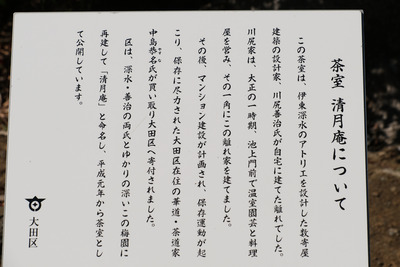 茶室 清月庵について
この茶室は、伊東深水のアトリエを設計した数寄屋
建築の設計家、川尻善治氏が自宅に建てた離れでした。
川尻家は、大正の一時期、池上門前で温室園芸と料理
屋を営み、その一角にこの離れ家を建てました。
その後、マンション建設が計画され、保存運動が起
こり、保存に尽力された大田区在住の華道・茶道家
中島恭名氏が買い取り大田区へ寄付されました。
区は、深水・善治の両氏とゆかりの深いこの梅園に
再建して「清月庵」と命名し、平成元年から茶室とし
て公開しています。
大田区